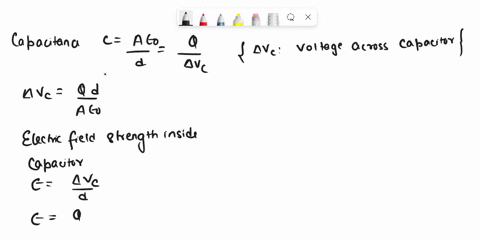 Capacitana C = Aϵ₀/d = Q/ΔVc { ΔVc: Voltage across capacitor }
ΔVc = Qd/Aϵ₀
Electric field strength inside
Capacitor
E = ΔVc/d
E = Q